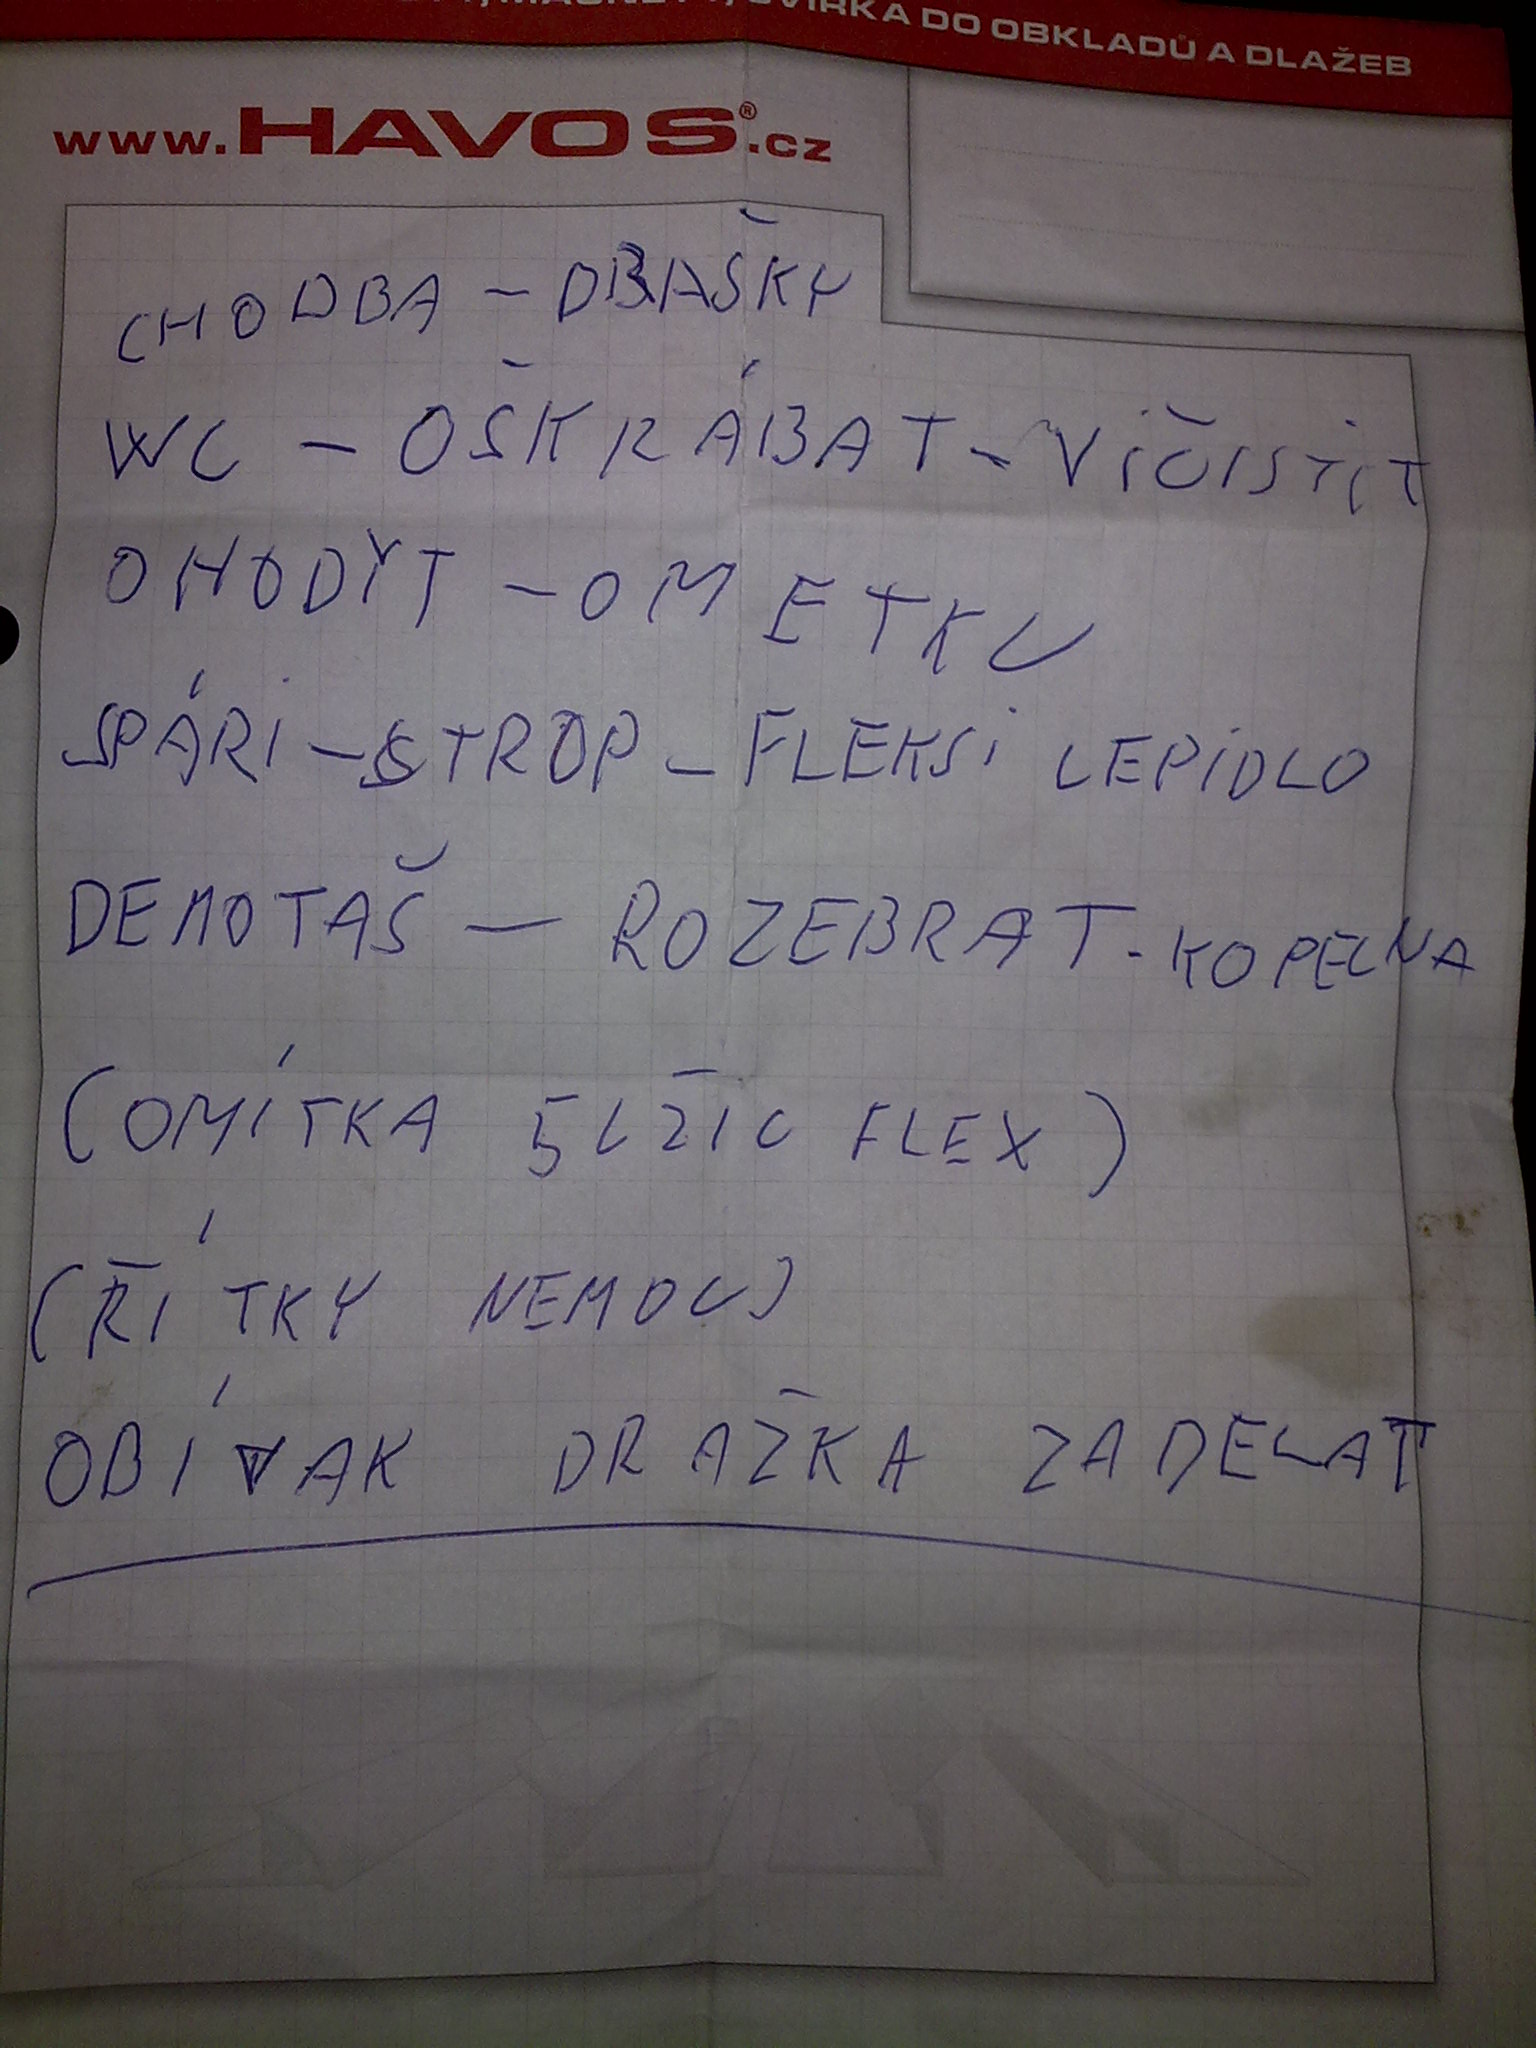 VÍRKA DO OBKLADŮ A DLAŽEB
www.HAVOS®.cz
CHODBA - DRAŠKY
WC - OŠKRÁBAT - VIČISTIT
OHODYT - OMETKU
SPÁRI - STROP - FLEKSI LEPIDLO
DEMOTAŠ - ROZEBRAT - KOPELNA
(OMÍTKA 5 LŽIC FLEX)
(ŘÍTKY NEMOC)
OBÍVAK DRAŽKA ZADELAT